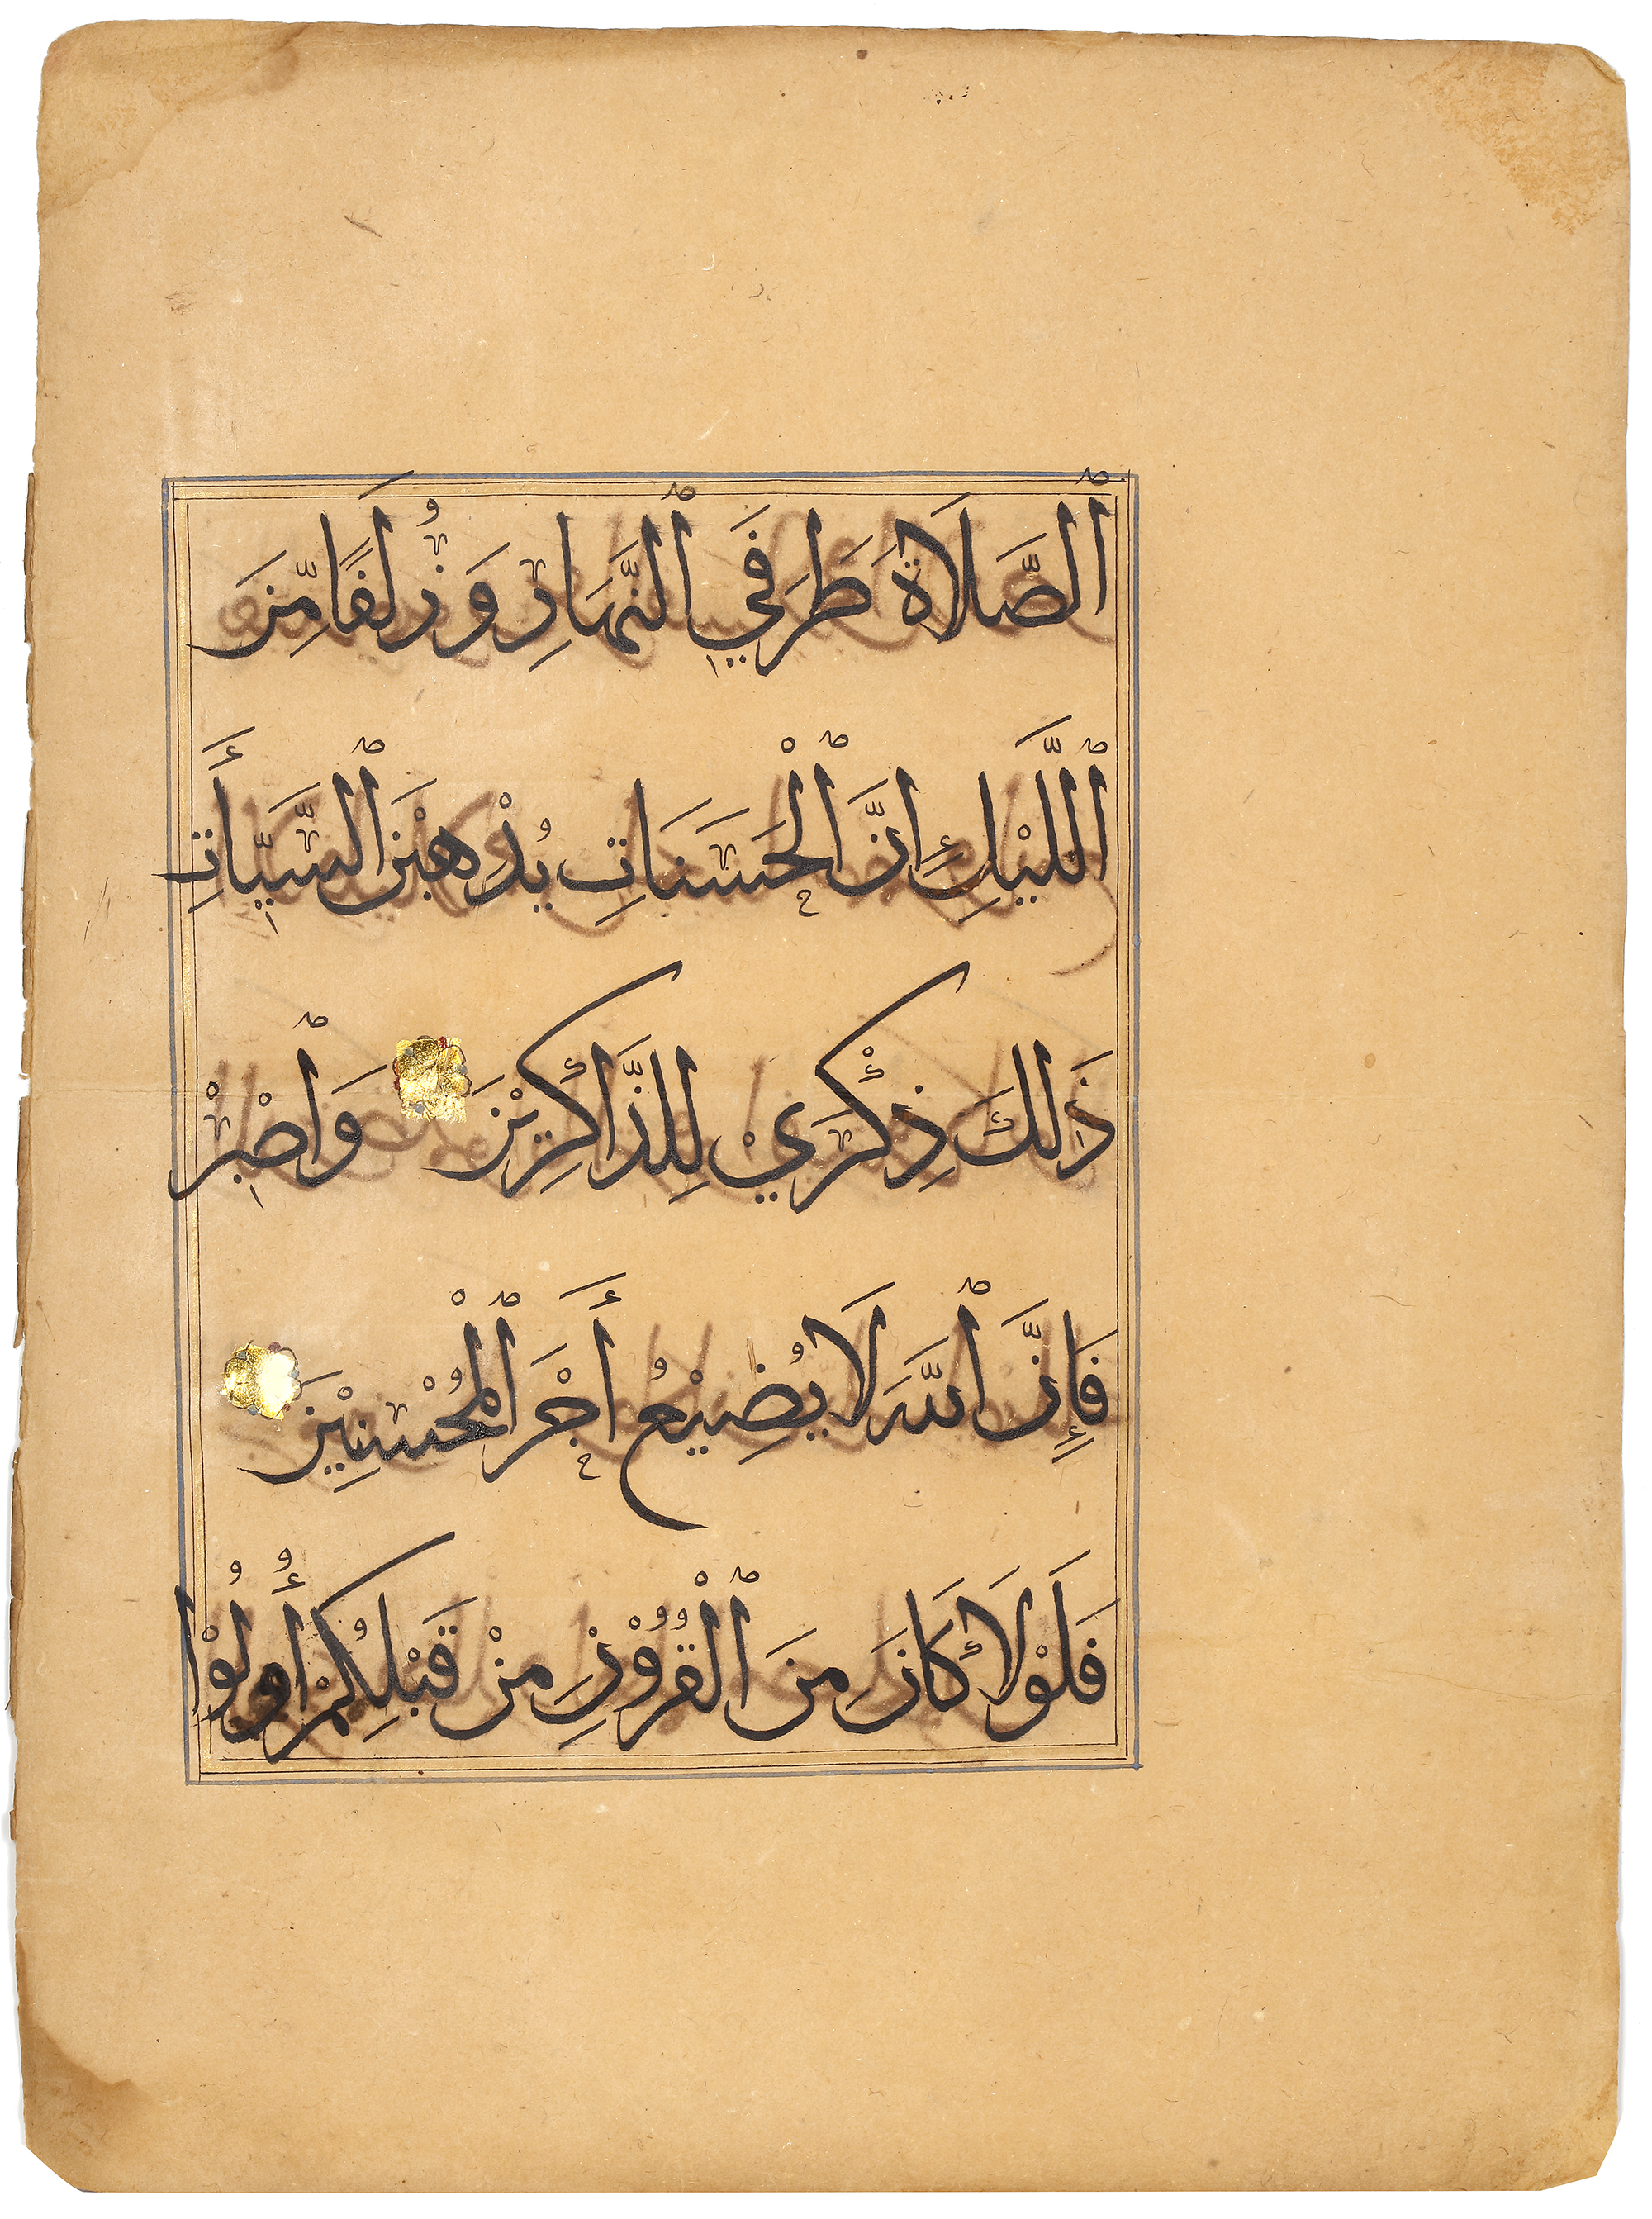 ٱلصَّلَاةَ طَرَفَيِ ٱلنَّهَارِ وَزُلَفًا مِّنَ
ٱللَّيْلِ إِنَّ ٱلْحَسَنَاتِ يُذْهِبْنَ ٱلسَّيِّأَتِ
ذَلِكَ ذِكْرَيْ لِلذَّاكِرِيْنَ وَٱصْبِرْ
فَإِنَّ ٱللَّهَ لَا يُضِيْعُ أَجْرَ ٱلْمُحْسِنِيْنَ
فَلَوْلَا كَانَ مِنَ ٱلْقُرُوْنِ مِنْ قَبْلِكُمْ أُولُوْا